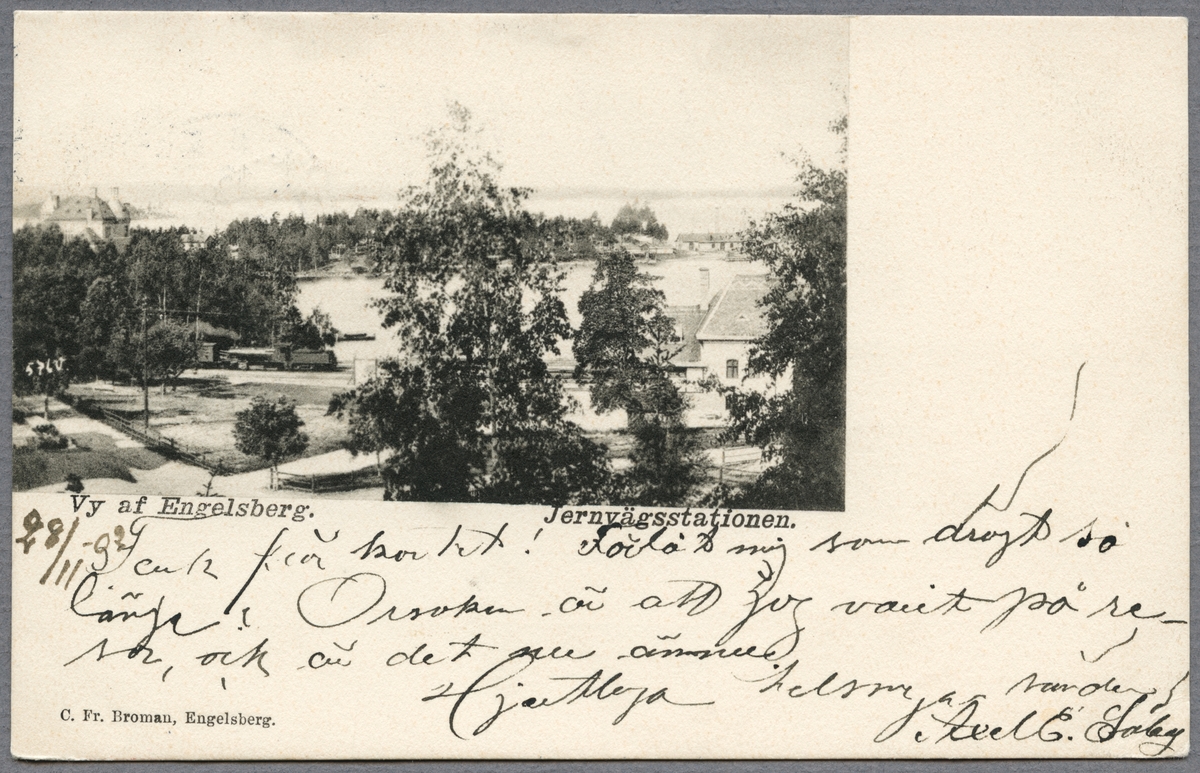 5761
Vy af Engelsberg.
Jernvägsstationen.
28/11 -02
Tack för kortet! Förlåt mig som drogt så
länge! Orsaken är att jag varit på re-
sor, ock är det nu ännu
Hjertliga helsningar sänder
Axel E.
C. Fr. Broman, Engelsberg.